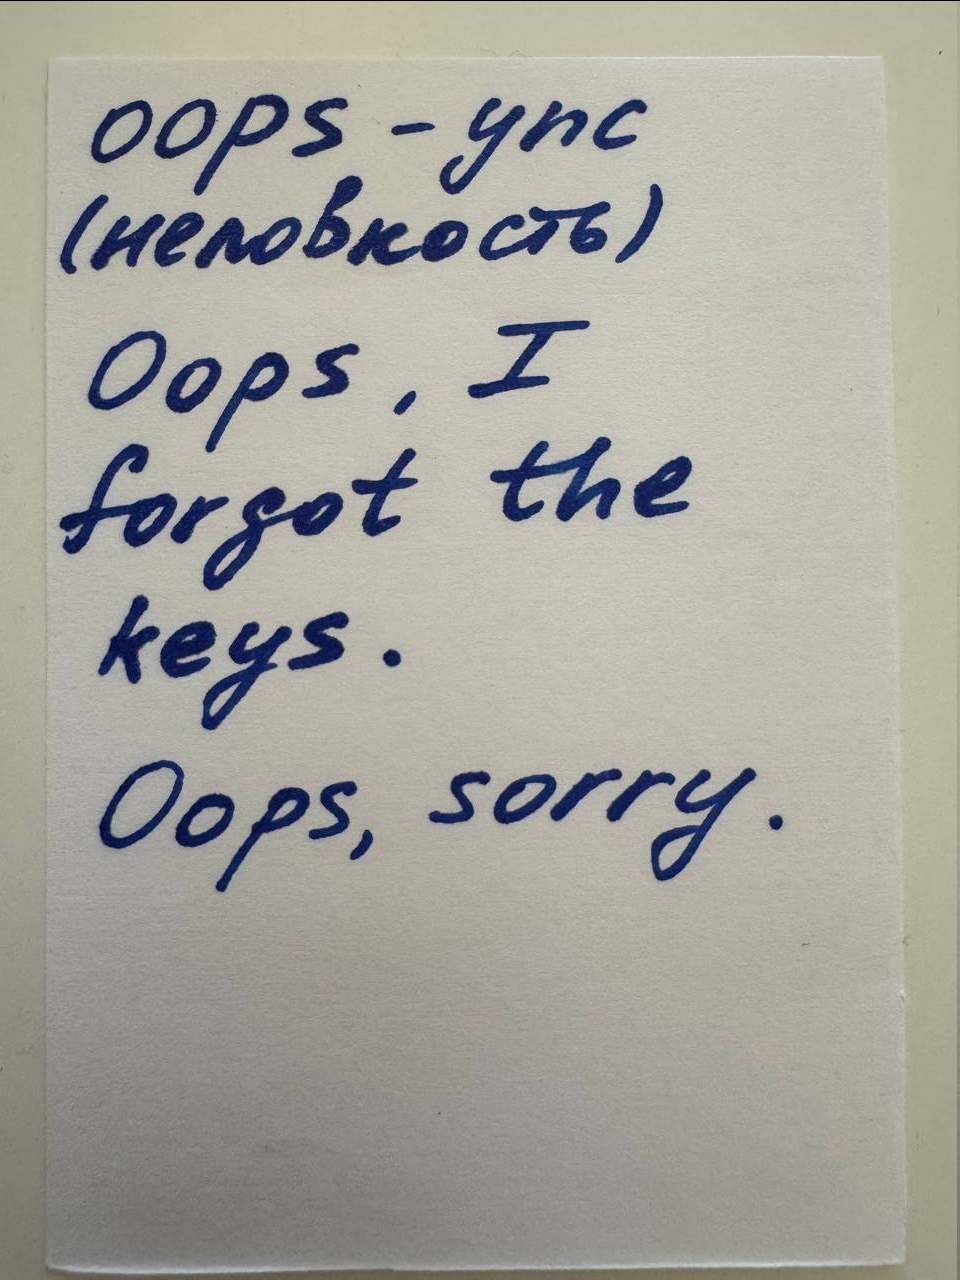 oops - упс
(неловкость)
Oops, I
forgot the
keys.
Oops, sorry.